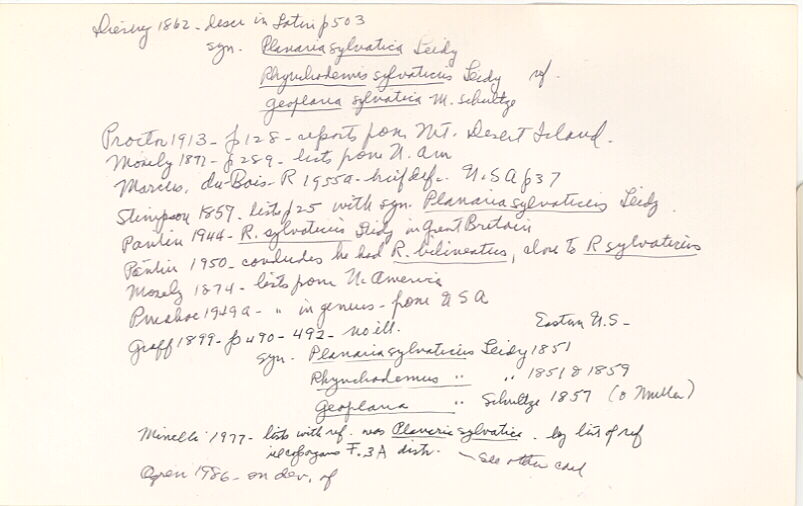 Diesing 1862 - descr in Latin p 503
syn. Planaria sylvatica Leidy
Rhynchodemis sylvaticus Leidy ref.
Geoplana sylvatica M. Schultze
Proctor 1913 - p 128 - reports from Mt. Desert Island.
Mosely 1877 - p 289 - lists from N. Am
Marcus, du-Bois-R 1955a - brief def - U.S.A p 37
Stimpson 1857. lists p 25 with syn. Planaria sylvaticus Leidy.
Pantin 1944 - R. sylvaticus Leidy in Great Britain
Pantin 1950 - concludes he had R. bilineatus, close to R sylvaticus
Mosely 1874 - lists from N. America
Prudhoe 1949a - " in genus - from U S A
Graff 1899 - p 490 - 492 - no ill. Eastern U.S -
syn. Planaria sylvaticus Leidy 1851
Rhynchodemus " " 1851 & 1859
Geoplana " Schultze 1857 (O Muller)
Minelli 1977 - lists with ref. was Planaria sylvatica. by list of ref
F. 3A distr. - See other card
1986 - on dev. of